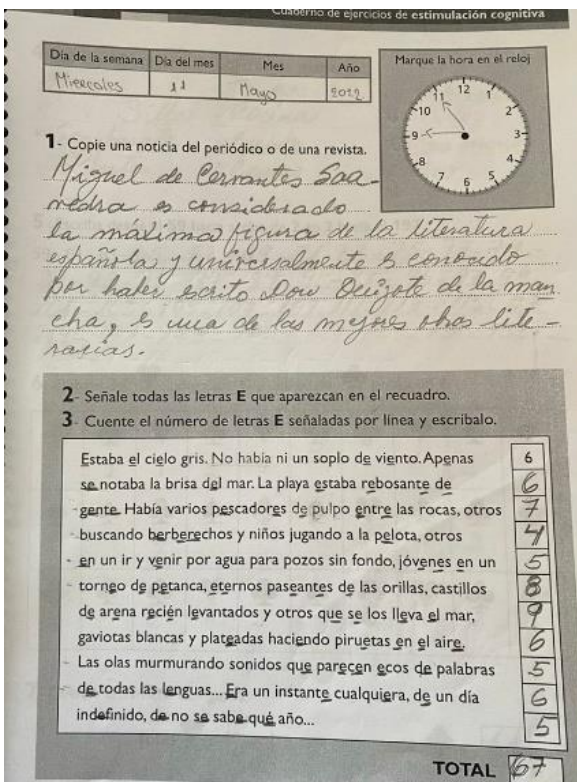 Cuaderno de ejercicios de estimulación cognitiva
Día de la semana Día del mes Mes Año
Miercoles 11 Mayo 2022
Marque la hora en el reloj
12
11 1
10 2
9 3
8 4
7 6 5
1- Copie una noticia del periódico o de una revista.
Miguel de Cervantes Saa-
vedra es considerado
la máxima figura de la literatura
española y universalmente es conocido
por haber escrito Don Quijote de la man
cha, es una de las mejores obras lite-
rarias.
2- Señale todas las letras E que aparezcan en el recuadro.
3- Cuente el número de letras E señaladas por línea y escríbalo.
Estaba el cielo gris. No había ni un soplo de viento. Apenas 6
se notaba la brisa del mar. La playa estaba rebosante de 6
gente. Había varios pescadores de pulpo entre las rocas, otros 7
buscando berberechos y niños jugando a la pelota, otros 4
en un ir y venir por agua para pozos sin fondo, jóvenes en un 5
torneo de petanca, eternos paseantes de las orillas, castillos 8
de arena recién levantados y otros que se los lleva el mar, 9
gaviotas blancas y plateadas haciendo piruetas en el aire. 6
Las olas murmurando sonidos que parecen ecos de palabras 5
de todas las lenguas... Era un instante cualquiera, de un día 6
indefinido, de no se sabe qué año... 5
TOTAL 67